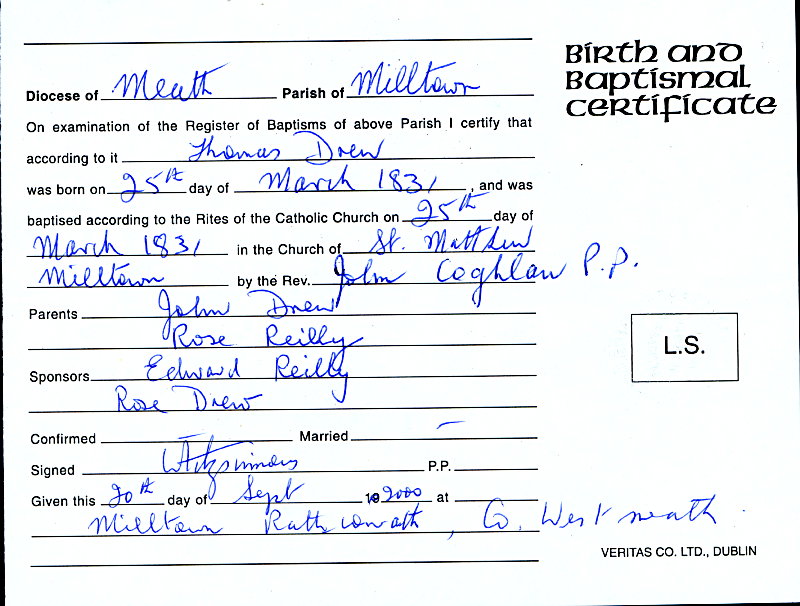 Birth and
Baptismal
Certificate
Diocese of Meath Parish of Milltown
On examination of the Register of Baptisms of above Parish I certify that
according to it Thomas Drew
was born on 25th day of March 1831, and was
baptised according to the Rites of the Catholic Church on 25th day of
March 1831 in the Church of St. Matthew
Milltown by the Rev. John Coghlan P.P.
Parents John Drew
Rose Reilly
Sponsors Edward Reilly
Rose Drew
Confirmed — Married —
Signed W Fitzsimons P.P.
Given this 20th day of Sept 19 2000 at
Milltown Rathconrath, Co. Westmeath
L.S.
VERITAS CO. LTD., DUBLIN